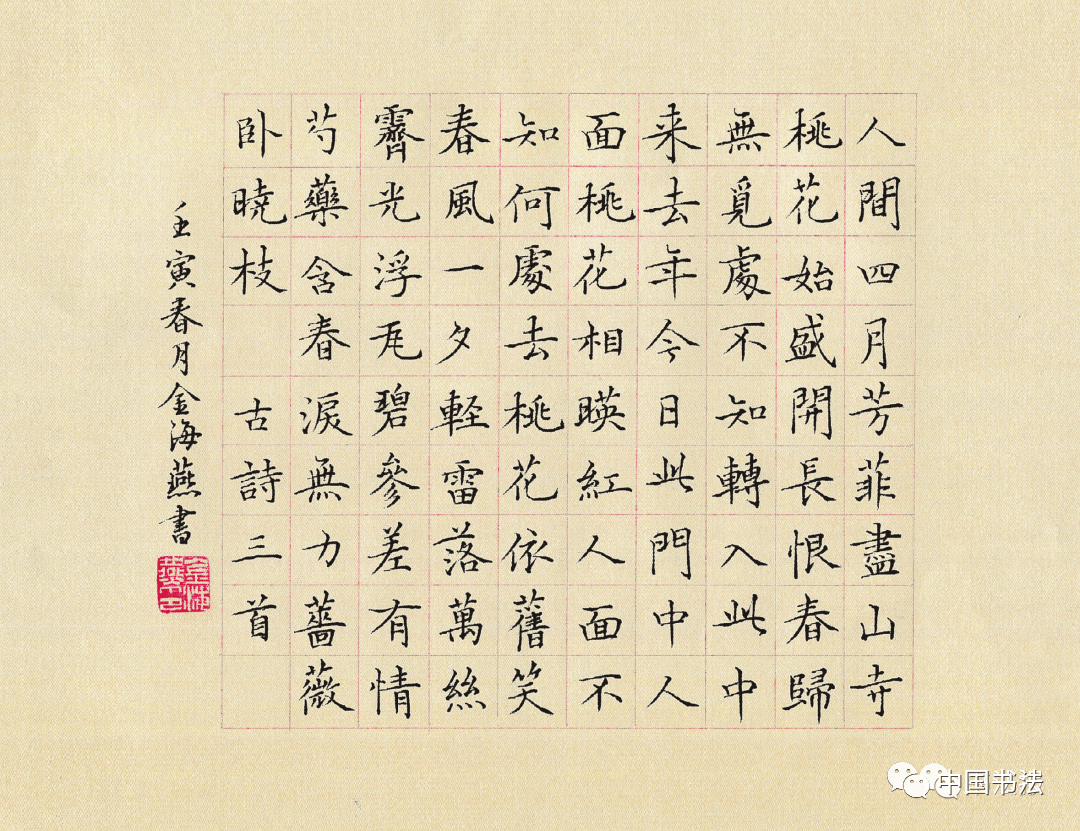 人間四月芳菲盡山寺
桃花始盛開長恨春歸
無覓處不知轉入此中
来去年今日此門中人
面桃花相暎紅人面不
知何處去桃花依舊笑
春風一夕軽雷落萬絲
霽光浮瓦碧參差有情
芍藥含春淚無力薔薇
卧暁枝 古詩三首
壬寅春月金海燕書
中国书法